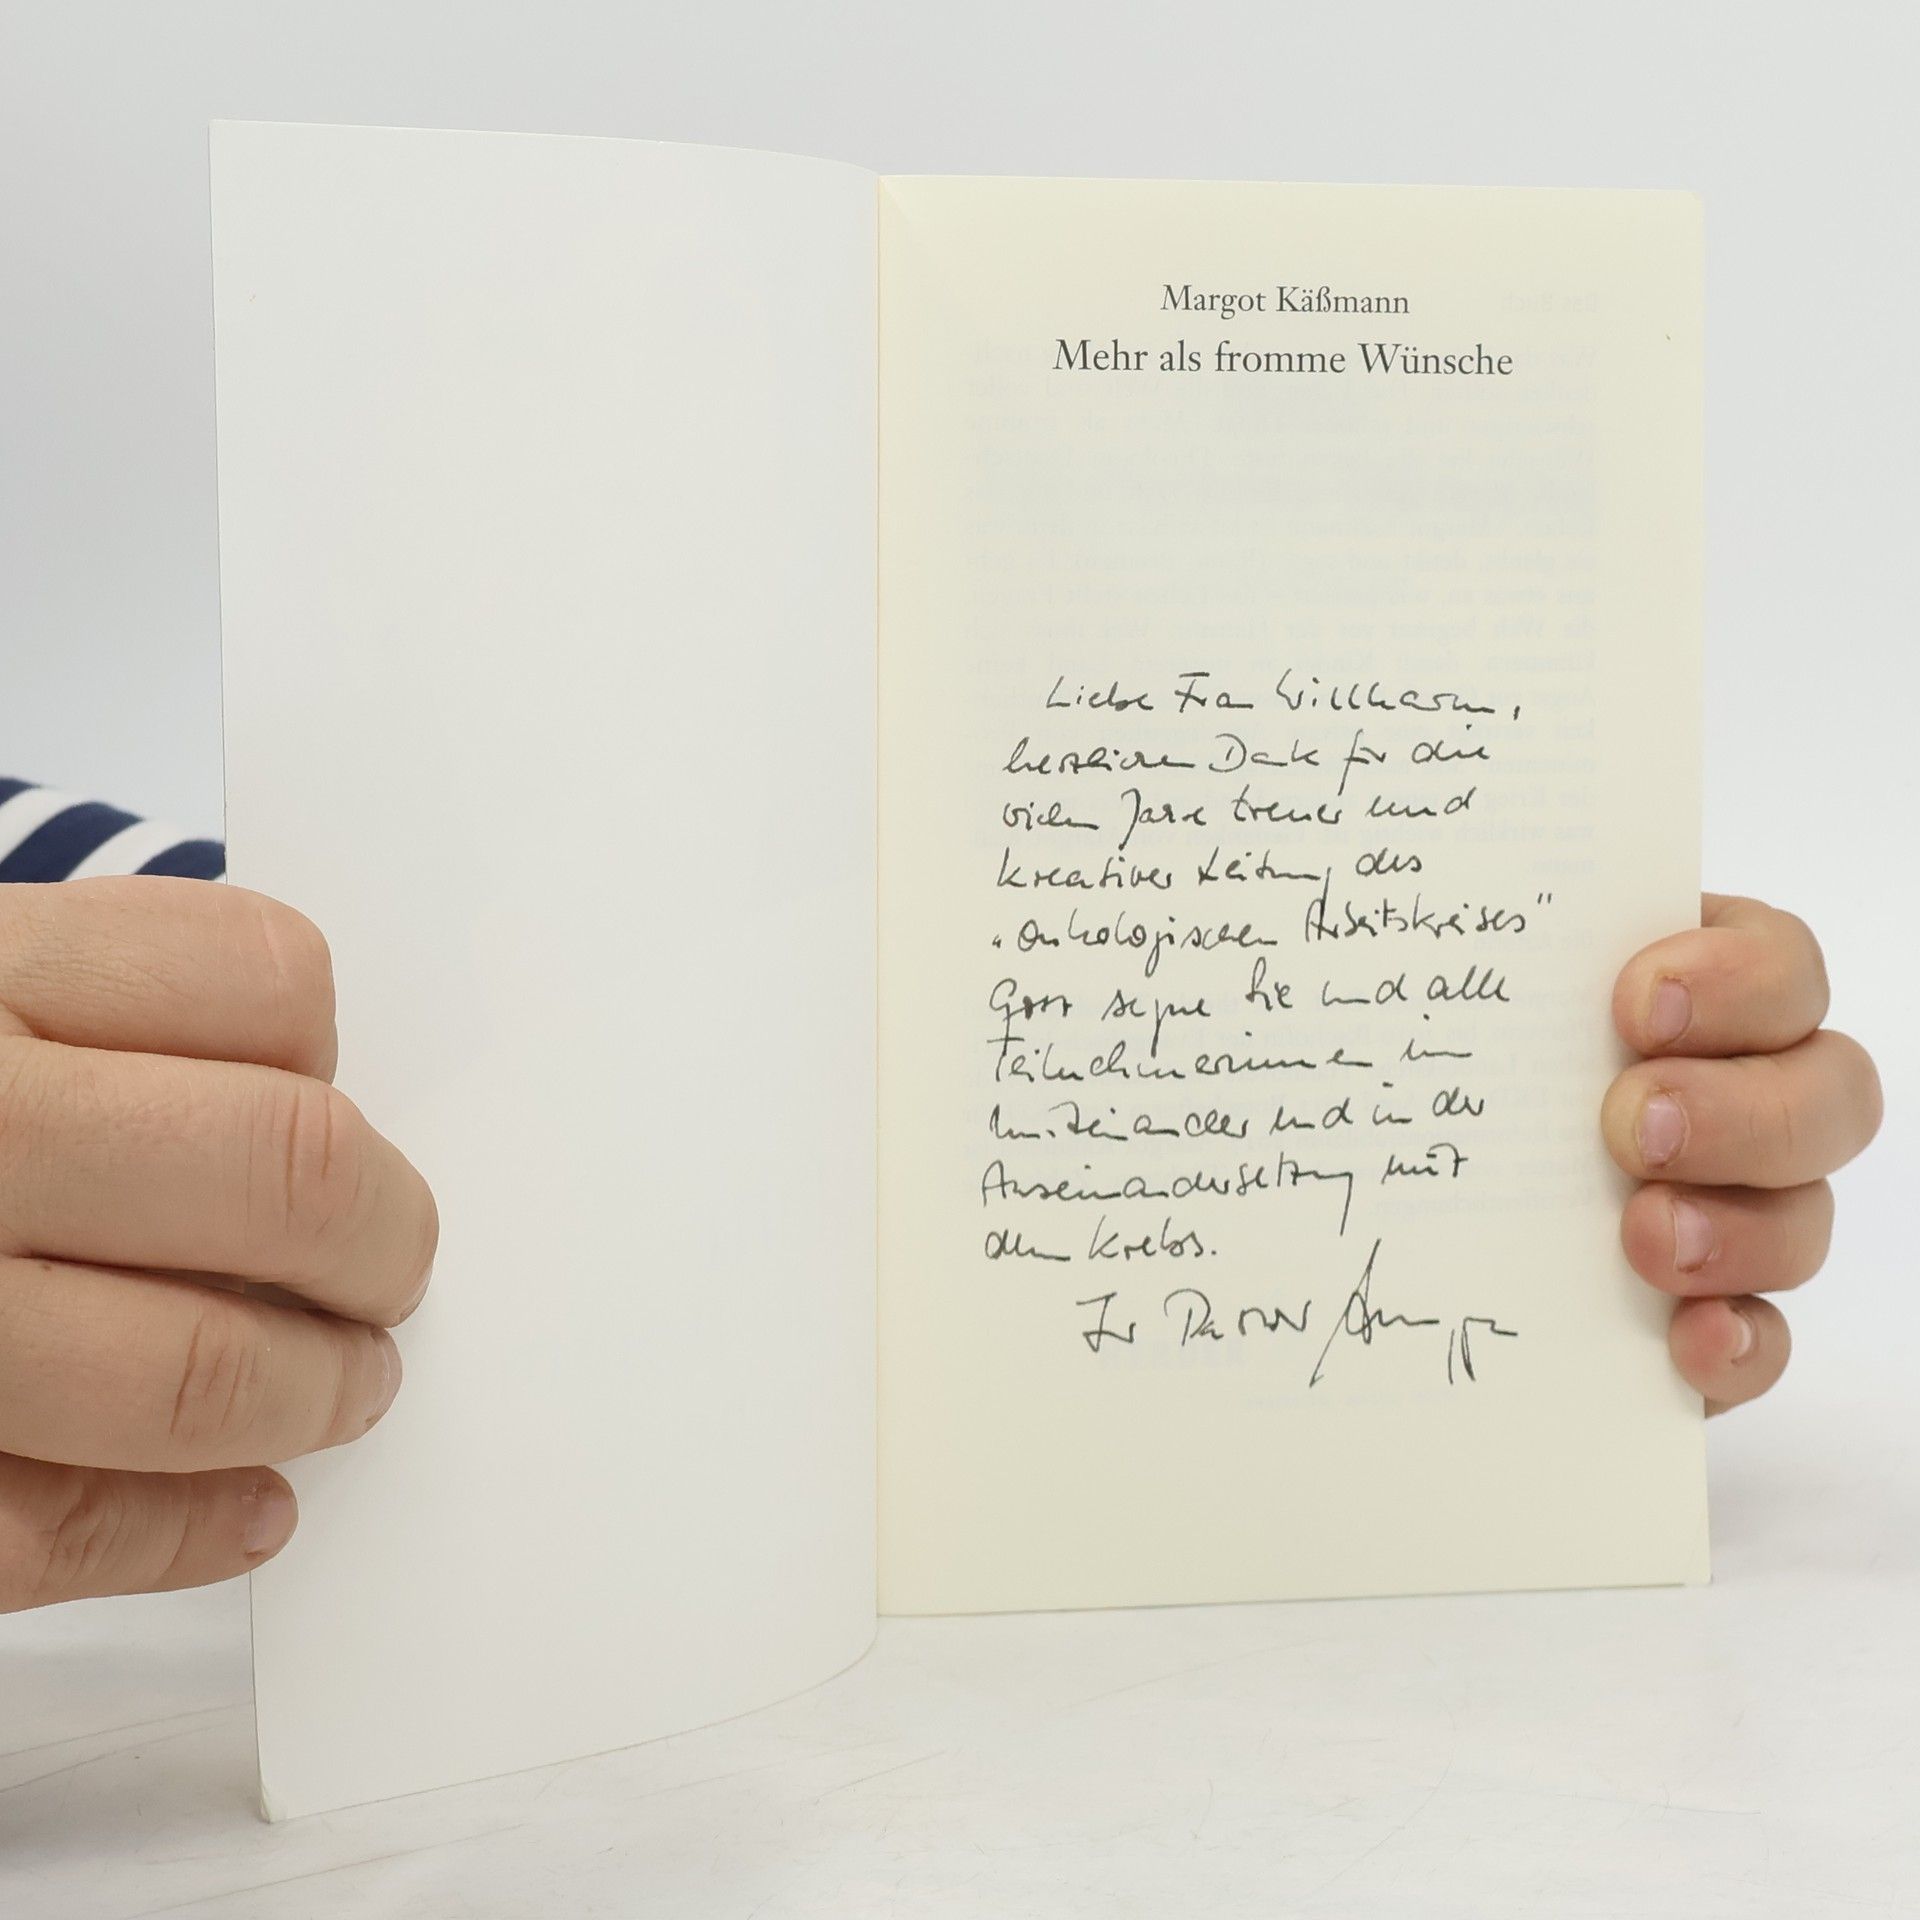 Margot Käßmann
Mehr als fromme Wünsche
Liebe Frau Willharm,
herzlichen Dank für die
vielen Jahre treuer und
kreativer Leitung des
„Onkologischen Arbeitskreises"
Gott segne Sie und alle
Teilnehmerinnen im
Miteinander und in der
Auseinandersetzung mit
dem Krebs.
Ihr Pastor